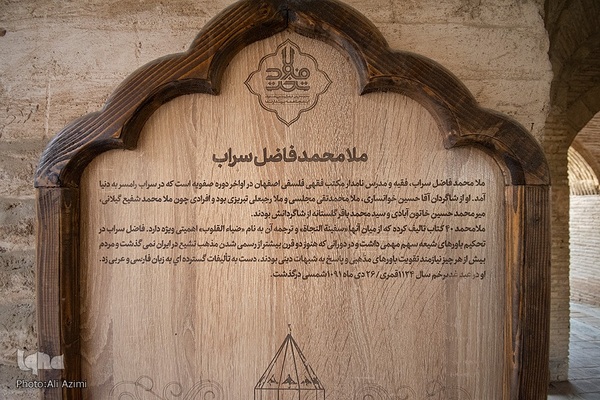 ملا محمد فاضل سراب
ملا محمد فاضل سراب، فقیه و مدرس نامدار مکتب فقهی فلسفی اصفهان در اواخر دوره صفویه است که در سراب رامسر به دنیا
آمد. او از شاگردان آقا حسین خوانساری، ملا محمدتقی مجلسی و ملا رجبعلی تبریزی بود و افرادی چون ملا محمد شفیع گیلانی،
میر محمد حسین خاتون آبادی و سید محمد باقر گلستانه از شاگردانش بودند.
ملامحمد ۴۰ کتاب تالیف کرده که از میان آنها «سفینة النجاة» و ترجمه آن به نام «ضیاء القلوب» اهمیتی ویژه دارد. فاضل سراب در
تحکیم باورهای شیعه سهم مهمی داشت و در دورانی که هنوز دو قرن بیشتر از رسمی شدن مذهب تشیع در ایران نمی گذشت و مردم
بیش از هر چیز نیازمند تقویت باورهای مذهبی و پاسخ به شبهات دینی بودند، دست به تألیفات گسترده ای به زبان فارسی و عربی زد.
او در عید غدیرخم سال ۱۱۲۴قمری / ۲۶ دی ماه ۱۰۹۱شمسی درگذشت.
ایکنا
Photo:Ali Azimi